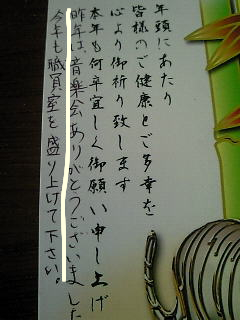 年頭にあたり
皆様のご健康とご多幸を
心より御祈り致します
本年も何卒宜しく御願い申し上げ
昨年は、音楽会ありがとうございました
今年も職員室を盛り上げて下さい。